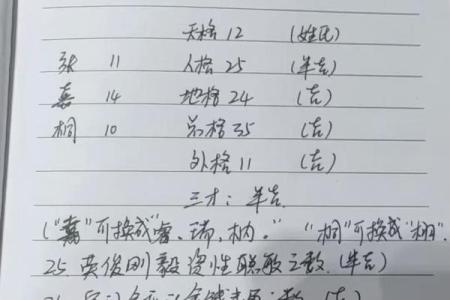 天格12 (姓氏)
张 11 人格25 (半吉)
嘉 14 地格24 (吉)
桐 10 总格35 (吉)
外格11 (吉)
三才：半吉
("嘉"可换成"睿、瑞、 "桐"可换成"栩".
25 英俊刚毅资性聪敏之数.(半吉)